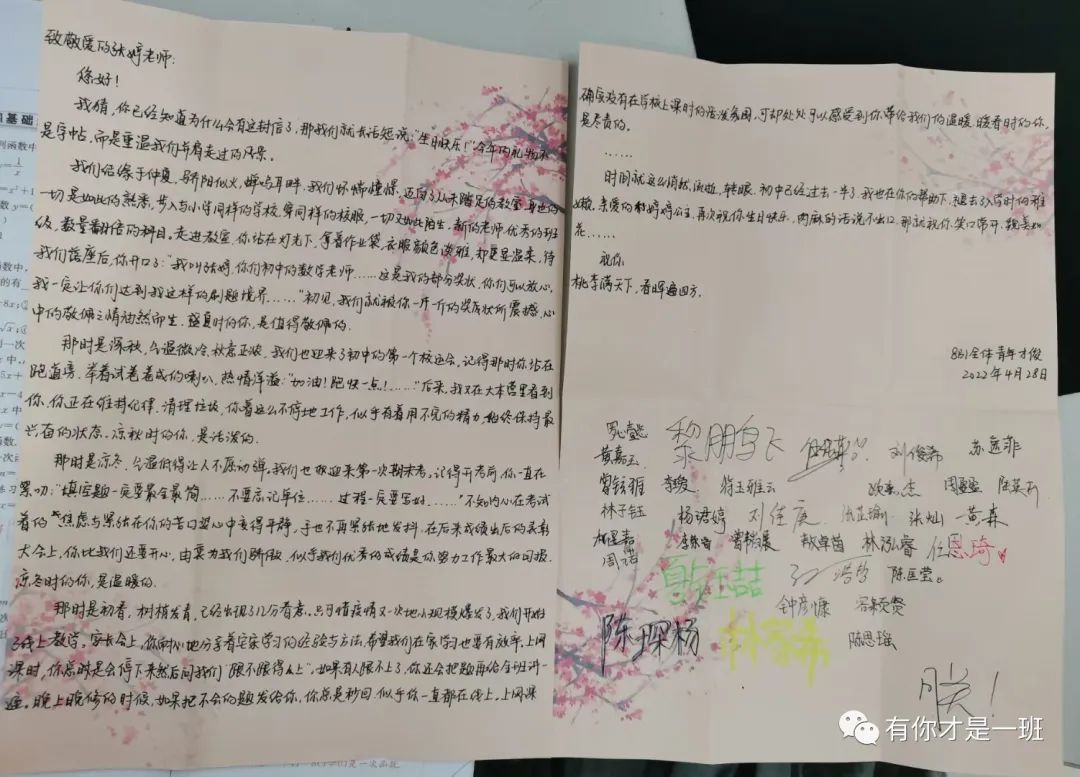 致敬爱的张婷老师：
您好！
我猜，你已经知道为什么会有这封信了，那我们就长话短说："生日快乐！"今年的礼物不
是字帖，而是重温我们并肩走过的风景。
我们结缘于仲夏，骄阳似火，蝉鸣耳畔，我们怀揣憧憬，迈向了从未踏足的教室，身边的一
切是如此的熟悉，步入与小学同样的学校，穿同样的校服，一切又如此陌生，新的老师，优秀的班
级，数量翻倍的科目。走进教室，你站在灯光下，拿着作业袋，衣服颜色淡雅，却更显温柔，待
我们落座后，你开口了："我叫张婷，你们初中的数学老师……这是我的部分奖状，你们可以放心，
我一定让你们达到我这样的刷题境界……"初见，我们就被你一斤一斤的奖状所震撼，心
中的敬佩之情油然而生。盛夏时的你，是值得敬佩的。
那时是深秋，气温微冷，秋意正浓，我们也迎来了初中的第一个校运会，记得那时你站在
跑道旁，举着试卷卷成的喇叭，热情洋溢："加油！跑快一点！……"后来，我又在大本营里看到
你，你正在维持纪律，清理垃圾，你着这么不停地工作，似乎有着用不完的精力，始终保持最
兴奋的状态。凉秋时的你，是活泼的。
那时是凉冬，气温低得让人不愿动弹。我们也欢迎来第一次期末考，记得开考前，你一直在
念叨："填写题一定要最全最简……不要忘记单位……过程一定要写好……"不知内心在考试
着的焦虑与紧张在你的苦口婆心中变得平静，手也不再紧张地发抖，在后来成绩出后的表彰
大会上，你比我们还要开心，由衷为我们骄傲，似乎我们优秀的成绩是你努力工作最大的回报。
凉冬时的你，是温暖的。
那时是初春，树梢发青，已经出现了几分春意。只可惜疫情又一次地小规模爆发了，我们开始
了线上教学，家长会上，你耐心地分享着居家学习的经验与方法，希望我们在家学习也要有效率，上网
课时，你总时是会停下来然后问我们"跟不跟得上"，如果有人跟不上了，你还会把题再给全班讲一
遍。晚上晚修的时候，如果把不会的题发给你，你总是秒回，似乎你一直都在线上，上网课
确实没有在学校上课时的活泼氛围，可却处处可以感受到你带给我们的温暖，暖春时的你，
是尽责的。
……
时间就这么悄然流逝，转眼，初中已经过去一半了。我也在你的帮助下，褪去了入学时的稚
嫩，亲爱的婷婷公主，再次祝你生日快乐，肉麻的话说不出口，那就祝你，笑口常开，貌美如
花……
祝你
桃李满天下，春晖遍四方。
8(5)全体青年才俊
2022年4月28日
黎鹏鸟飞
刘俊希
苏逸菲
黄嘉玉
曾铉雅
李璇
符玉雅云
周盈盈
陆英萍
林子钰
杨珺婷
刘佳庚
张灿
黄森
林泓睿
任恩琦
周诺
浩哲
陈匡莹
钟彦慷
陈琛杨
陈思瑶
朕！
有你才是一班
基础